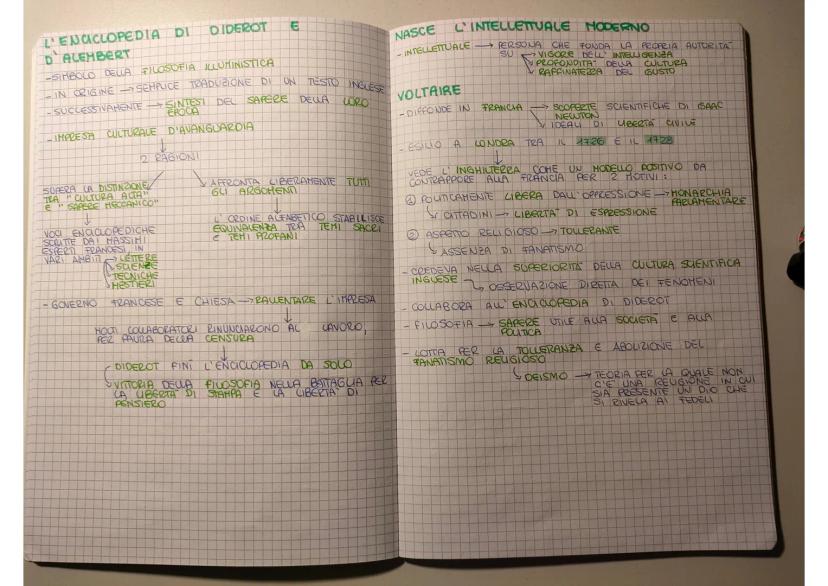 L'ENCICLOPEDIA DI DIDEROT E
D'ALEMBERT
-SIMBOLO DELLA FILOSOFIA ILLUMINISTICA
-IN ORIGINE → SEMPLICE TRADUZIONE DI UN TESTO INGLESE
-SUCCESSIVAMENTE → SINTESI DEL SAPERE DELLA LORO
EPOCA
-IMPRESA CULTURALE D'AVANGUARDIA
2 RAGIONI
SUPERA LA DISTINZIONE
TRA "CULTURA ALTA"
E "SAPERE MECCANICO"
AFFRONTA LIBERAMENTE TUTTI
GLI ARGOMENTI
L'ORDINE ALFABETICO STABILISCE
EQUIVALENZA TRA TEMI SACRI
E TEMI PROFANI
VOCI ENCICLOPEDICHE
SCRITTE DAI MASSIMI
ESPERTI FRANCESI IN
VARI AMBITI → LETTERE
SCIENZE
TECNICHE
MESTIERI
-GOVERNO FRANCESE E CHIESA → RALLENTARE L'IMPRESA
MOLTI COLLABORATORI RINUNCIARONO AL LAVORO,
PER PAURA DELLA CENSURA
DIDEROT FINÌ L'ENCICLOPEDIA DA SOLO
VITTORIA DELLA FILOSOFIA NELLA BATTAGLIA PER
LA LIBERTÀ DI STAMPA E LA LIBERTÀ DI
PENSIERO
NASCE L'INTELLETTUALE MODERNO
-INTELLETTUALE → PERSONA CHE FONDA LA PROPRIA AUTORITÀ
SU → VIGORE DELL'INTELLIGENZA
PROFONDITÀ DELLA CULTURA
RAFFINATEZZA DEL GUSTO
VOLTAIRE
-DIFFONDE IN FRANCIA → SCOPERTE SCIENTIFICHE DI ISAAC
NEWTON
IDEALI DI LIBERTÀ CIVILE
-ESILIO A LONDRA TRA IL 1726 E IL 1728
VEDE L'INGHILTERRA COME UN MODELLO POSITIVO DA
CONTRAPPORRE ALLA FRANCIA PER 2 MOTIVI:
① POLITICAMENTE LIBERA DALL'OPPRESSIONE → MONARCHIA
PARLAMENTARE
CITTADINI → LIBERTÀ DI ESPRESSIONE
② ASPETTO RELIGIOSO → TOLLERANTE
ASSENZA DI FANATISMO
-CREDEVA NELLA SUPERIORITÀ DELLA CULTURA SCIENTIFICA
INGLESE
OSSERVAZIONE DIRETTA DEI FENOMENI
-COLLABORA ALL'ENCICLOPEDIA DI DIDEROT
-FILOSOFIA → SAPERE UTILE ALLA SOCIETÀ E ALLA
POLITICA
-LOTTA PER LA TOLLERANZA E ABOLIZIONE DEL
FANATISMO RELIGIOSO
DEISMO → TEORIA PER LA QUALE NON
C'È UNA RELIGIONE IN CUI
SIA PRESENTE UN DIO CHE
SI RIVELA AI FEDELI